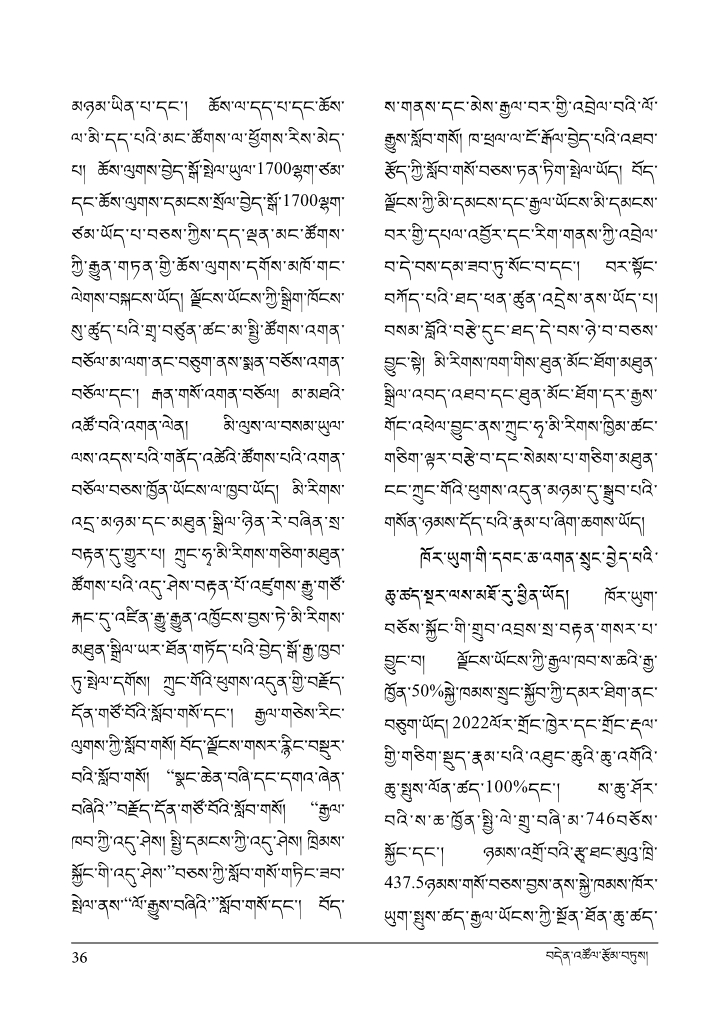 མཉམ་ཡིན་པ་དང་། ཆོས་ལ་དད་པ་དང་ཆོས་
ལ་མི་དད་པའི་མང་ཚོགས་ལ་ཕྱོགས་རིས་མེད་
པ། ཆོས་ལུགས་བྱེད་སྒོ་སྤེལ་ཡུལ་1700ལྷག་ཙམ་
དང་ཆོས་ལུགས་དམངས་སྲོལ་བྱེད་སྒོ་1700ལྷག་
ཙམ་ཡོད་པ་བཅས་ཀྱིས་དད་ལྡན་མང་ཚོགས་
ཀྱི་རྒྱུན་གཏན་གྱི་ཆོས་ལུགས་དགོས་མཁོ་གང་
ལེགས་བསྐངས་ཡོད། ལྗོངས་ཡོངས་ཀྱི་སྒྲིག་ཁོངས་
སུ་ཚུད་པའི་གྲྭ་བཙུན་ཚང་མ་སྤྱི་ཚོགས་འགན་
བཅོལ་མ་ལག་ནང་བཅུག་ནས་སྨན་བཅོས་འགན་
བཅོལ་དང་། རྒན་གསོ་འགན་བཅོལ། མ་མཐའི་
འཚོ་བའི་འགན་ལེན། མི་ལུས་ལ་བསམ་ཡུལ་
ལས་འདས་པའི་གནོད་འཚེའི་ཚོགས་པའི་འགན་
བཅོལ་བཅས་ཁྱོན་ཡོངས་ལ་ཁྱབ་ཡོད། མི་རིགས་
འདྲ་མཉམ་དང་མཐུན་སྒྲིལ་ཉིན་རེ་བཞིན་སྲ་
བརྟན་དུ་གྱུར་པ། ཀྲུང་ཧྭ་མི་རིགས་གཅིག་མཐུན་
ཚོགས་པའི་འདུ་ཤེས་བརྟན་པོ་འཛུགས་རྒྱུ་གཙོ་
རྐང་དུ་འཛིན་རྒྱུ་རྒྱུན་འཁྱོངས་བྱས་ཏེ་མི་རིགས་
མཐུན་སྒྲིལ་ཡར་ཐོན་གཏོད་པའི་བྱེད་སྒོ་རྒྱ་ཁྱབ་
ཏུ་སྤེལ་དགོས། ཀྲུང་གོའི་ཕུགས་འདུན་གྱི་བརྗོད་
དོན་གཙོ་བོའི་སློབ་གསོ་དང་། རྒྱལ་གཅེས་རིང་
ལུགས་ཀྱི་སློབ་གསོ། བོད་ལྗོངས་གསར་རྙིང་བསྡུར་
བའི་སློབ་གསོ། “སྣང་ཆེན་བཞི་དང་དགའ་ཞེན་
བཞིའི་”བརྗོད་དོན་གཙོ་བོའི་སློབ་གསོ། “རྒྱལ་
ཁབ་ཀྱི་འདུ་ཤེས། སྤྱི་དམངས་ཀྱི་འདུ་ཤེས། ཁྲིམས་
སྐྱོང་གི་འདུ་ཤེས་”བཅས་ཀྱི་སློབ་གསོ་གཏིང་ཟབ་
སྤེལ་ནས་“ལོ་རྒྱུས་བཞིའི་”སློབ་གསོ་དང་། བོད་
ས་གནས་དང་མེས་རྒྱལ་བར་གྱི་འབྲེལ་བའི་ལོ་
རྒྱུས་སློབ་གསོ། ཁ་ཕྲལ་ལ་ངོ་རྒོལ་བྱེད་པའི་འཐབ་
རྩོད་ཀྱི་སློབ་གསོ་བཅས་ཏན་ཏིག་སྤེལ་ཡོད། བོད་
ལྗོངས་ཀྱི་མི་དམངས་དང་རྒྱལ་ཡོངས་མི་དམངས་
བར་གྱི་དཔལ་འབྱོར་དང་རིག་གནས་ཀྱི་འབྲེལ་
བ་དེ་བས་དམ་ཟབ་ཏུ་སོང་བ་དང་། བར་སྟོང་
བཀོད་པའི་ཐད་ཕན་ཚུན་འདྲེས་ནས་ཡོད་པ།
བསམ་བློའི་བརྩེ་དུང་ཐད་དེ་བས་ཉེ་བ་བཅས་
བྱུང་སྟེ། མི་རིགས་ཁག་གིས་ཐུན་མོང་ཐོག་མཐུན་
སྒྲིལ་འབད་འཐབ་དང་ཐུན་མོང་ཐོག་དར་རྒྱས་
གོང་འཕེལ་བྱུང་ནས་ཀྲུང་ཧྭ་མི་རིགས་ཁྱིམ་ཚང་
གཅིག་ལྟར་བརྩེ་བ་དང་སེམས་པ་གཅིག་མཐུན་
ངང་ཀྲུང་གོའི་ཕུགས་འདུན་མཉམ་དུ་སྒྲུབ་པའི་
གསོན་ཉམས་དོད་པའི་རྣམ་པ་ཞིག་ཆགས་ཡོད།
ཁོར་ཡུག་གི་དབང་ཆ་འགན་སྲུང་བྱེད་པའི་
ཆུ་ཚད་སྔར་ལས་མཐོ་རུ་ཕྱིན་ཡོད། ཁོར་ཡུག་
བཅོས་སྐྱོང་གི་གྲུབ་འབྲས་སྲ་བརྟན་གསར་པ་
བྱུང་བ། ལྗོངས་ཡོངས་ཀྱི་རྒྱལ་ཁབ་ས་ཆའི་རྒྱ་
ཁྱོན་50%སྐྱེ་ཁམས་སྲུང་སྐྱོབ་ཀྱི་དམར་ཐིག་ནང་
བཅུག་ཡོད། 2022ལོར་གྲོང་ཁྱེར་དང་གྲོང་རྡལ་
གྱི་གཅིག་སྡུད་རྣམ་པའི་འཐུང་ཆུའི་ཆུ་འགོའི་
ཆུ་སྤུས་ལོན་ཚད་100%དང་། ས་ཆུ་ཤོར་
བའི་ས་ཆ་ཁྱོན་སྤྱི་ལེ་གྲུ་བཞི་མ་746བཅོས་
སྐྱོང་དང་། ཉམས་འགྲོ་བའི་རྩྭ་ཐང་མུའུ་ཁྲི་
437.5ཉམས་གསོ་བཅས་བྱས་ནས་སྐྱེ་ཁམས་ཁོར་
ཡུག་སྤུས་ཚད་རྒྱལ་ཡོངས་ཀྱི་སྔོན་ཐོན་ཆུ་ཚད་
36
བདེན་འཚོལ་རྩོམ་བཏུས།